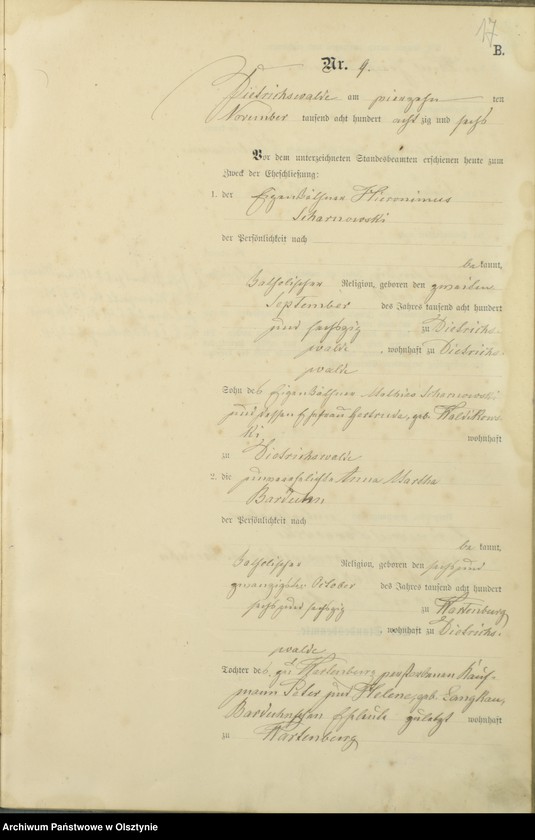 17
B.
Nr. 9.
Dietrichswalde am vierzehn ten
November tausend acht hundert acht zig und sechs
Vor dem unterzeichneten Standesbeamten erschienen heute zum
Zweck der Eheschließung:
1. der Eigenkäthner Hieronimus
Scharnowski
der Persönlichkeit nach
be kannt,
katholischer Religion, geboren den zweiten
September des Jahres tausend acht hundert
und sechszig zu Dietrichs-
walde, wohnhaft zu Dietrichs-
walde
Sohn des Eigenkäthner Mathias Scharnowski
und dessen Ehefrau Gertrude, geb.
ki wohnhaft
zu Dietrichswalde
2. die unverehelichte Anna Martha
Barduhn
der Persönlichkeit nach
be kannt,
katholischer Religion, geboren den sechsund
zwanzigsten October des Jahres tausend acht hundert
sechsundsechzig zu Wartenburg
, wohnhaft zu Dietrichs-
walde
Tochter der zu Wartenburg verstorbenen Kauf-
mann Peter und Helene, geb. Langkau,
Barduhnschen Eheleute zuletzt wohnhaft
zu Wartenburg
Archiwum Państwowe w Olsztynie